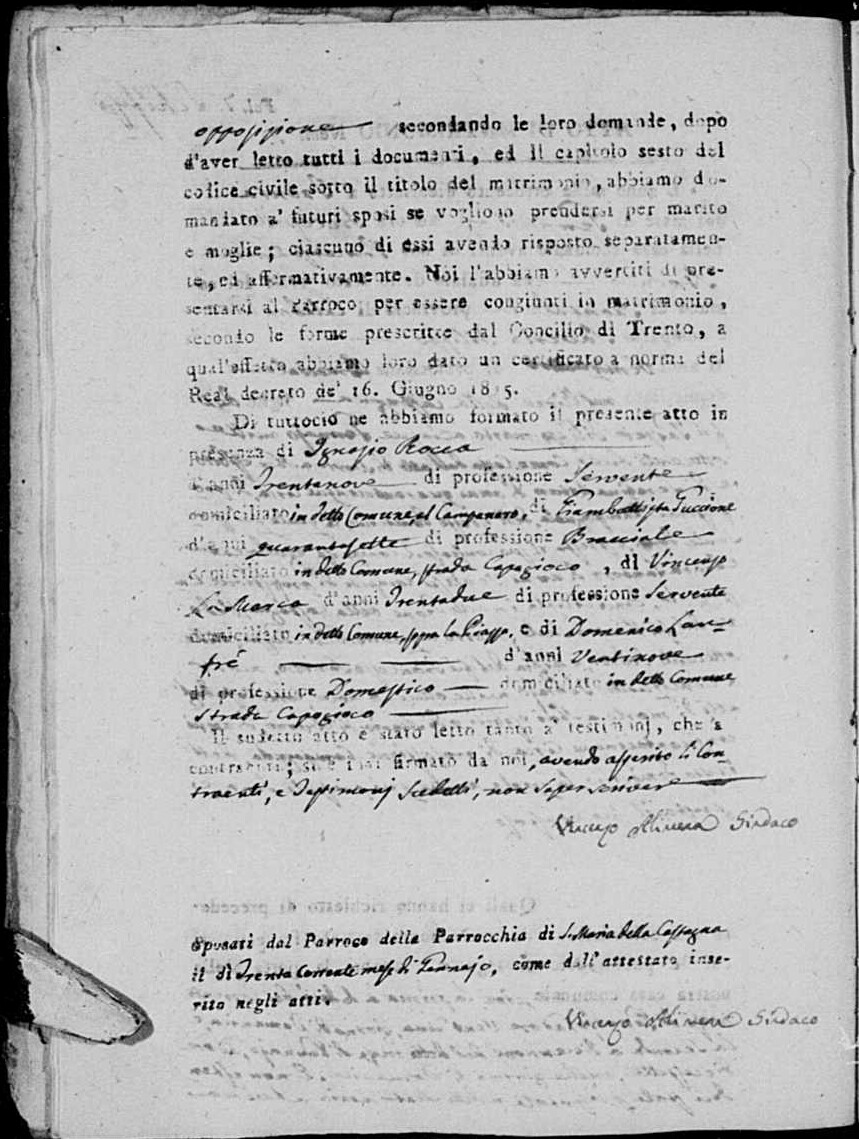 opposizione secondando le loro domande, dopo
d'aver letto tutti i documenti, ed il capitolo sesto del
codice civile sotto il titolo del matrimonio, abbiamo do-
mandato a' futuri sposi se vogliono prendersi per marito
e moglie; ciascuno di essi avendo risposto separatamen-
te, ed affermativamente. Noi l'abbiamo avvertiti di pre-
sentarsi al Parroco per essere congiunti in matrimonio,
secondo le forme prescritte dal Concilio di Trento, a
qual'effetto abbiamo loro dato un certificato a norma del
Real decreto de' 16. Giugno 1815.
Di tuttociò ne abbiamo formato il presente atto in
presenza di Ignazio Rocca
d'anni Trentanove di professione Servente
domiciliato in detto Comune, al Campanaro, di Giambattista Puccione
d'anni quarantasette di professione Bracciale
domiciliato in detto Comune, strada Capogioco, di Vincenzo
La Marca d'anni Trentadue di professione Servente
domiciliato in detto Comune, sopra la Piazza, e di Domenico Lan-
frè d'anni Ventinove
di professione Domestico domiciliato in detto Comune,
Strada Capogioco
Il sudetto atto è stato letto tanto a' testimonj, che a
contraenti; si è indi firmato da noi, avendo asserito li Con-
traenti, e Testimonj Sudetti, non saper scrivere
Vincenzo Sindaco
Sposati dal Parroco della Parrocchia di S. Maria della
il dì Trenta Corrente mese di Gennajo, come dall'attestato inse-
rito negli atti.
Vincenzo Sindaco